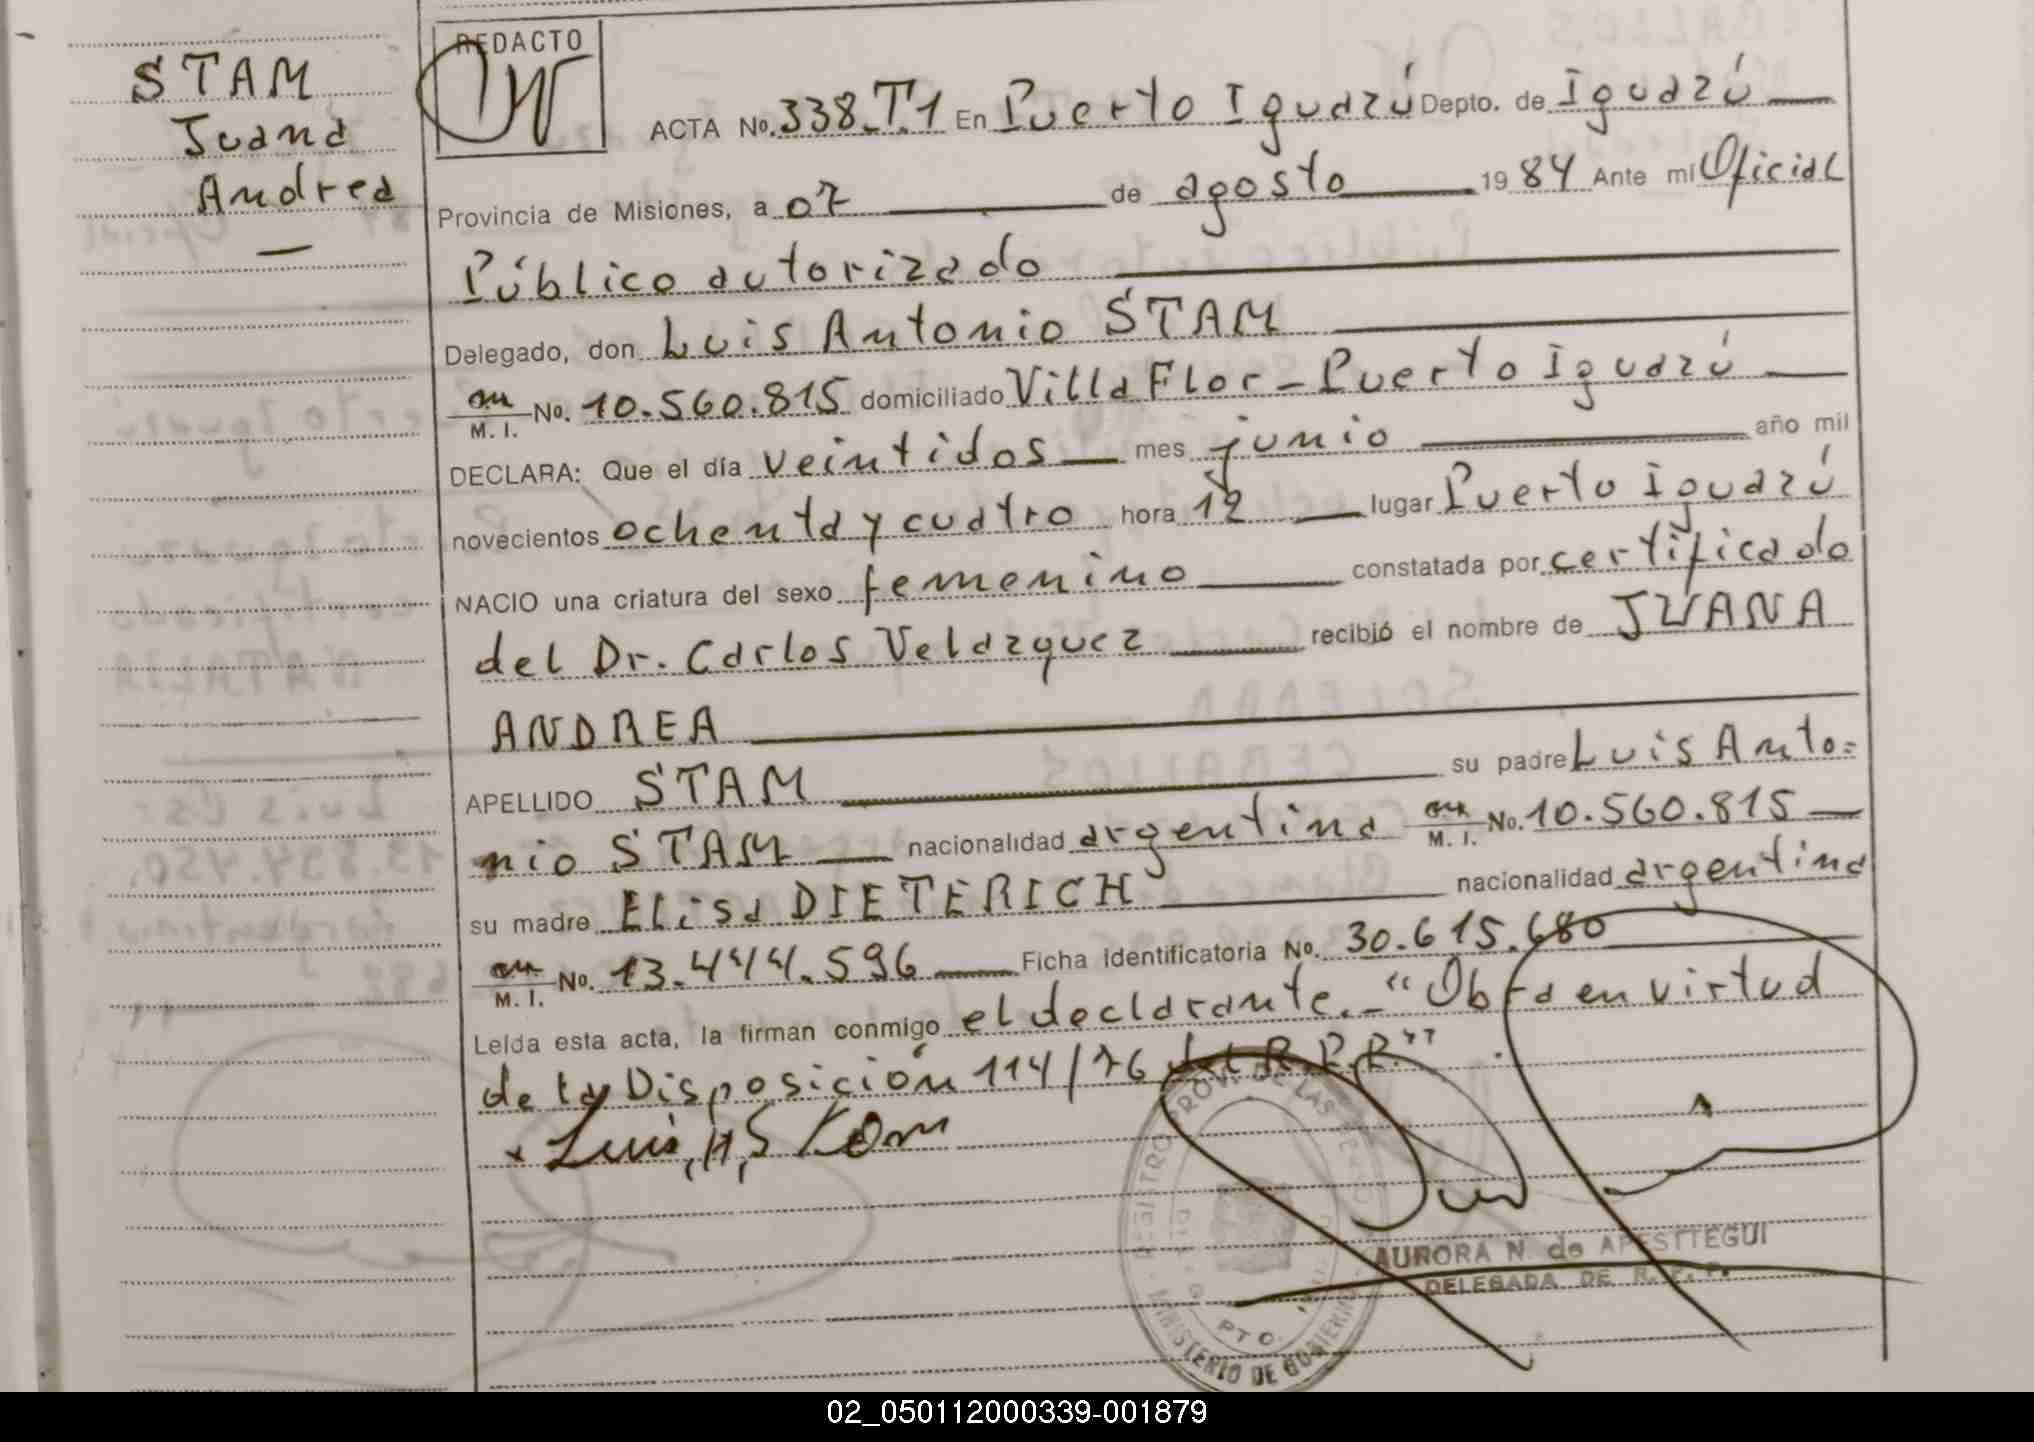 STAM
Juana
Andrea
REDACTO
ACTA No. 338.T.1 En Puerto Iguazú Depto. de Iguazú
Provincia de Misiones, a 07 de agosto 1984 Ante mi Oficial
Público autorizado
Delegado, don Luis Antonio STAM
M. I. No. 10.560.815 domiciliado Villa Flor - Puerto Iguazú
DECLARA: Que el día veintidos mes junio año mil
novecientos ochenta y cuatro hora 12 lugar Puerto Iguazú
NACIO una criatura del sexo femenino constatada por certificado
del Dr. Carlos Velazquez recibió el nombre de JUANA
ANDREA
APELLIDO STAM su padre Luis Anto=
nio STAM nacionalidad argentina M. I. No. 10.560.815
su madre Elisa DIETERICH nacionalidad argentina
M. I. No. 13.444.596 Ficha identificatoria No. 30.615.680
Leída esta acta, la firman conmigo el declarante.- "Obra en virtud
de la Disposición 114/76 del R.P.P."
Luis, A, Stam
REGISTRO PROV. DE LAS
MINISTERIO DE GOBIERNO
PTO.
AURORA N. de APESTTEGUI
DELEGADA DE R. P. P.
02_050112000339-001879